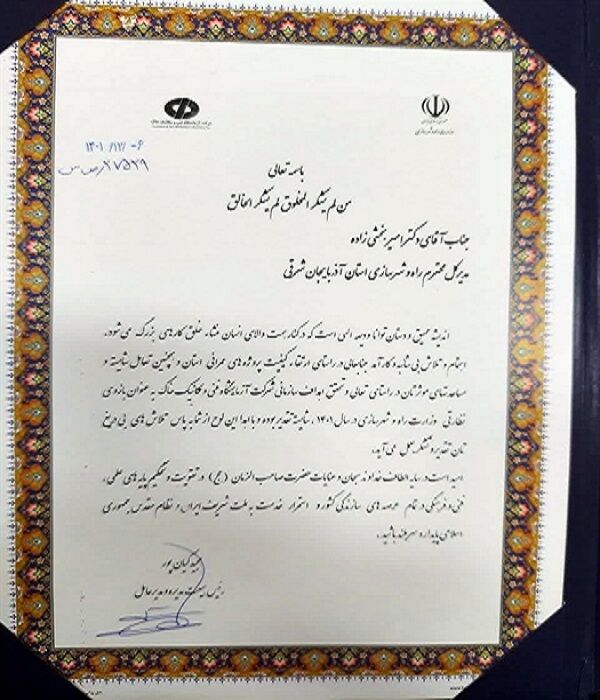 ۱۴۰۱/۱۲/۰۶
باسمه تعالی
من لم یشکر المخلوق لم یشکر الخالق
جناب آقای دکتر امیر بخشی زاده
مدیرکل محترم راه و شهرسازی استان آذربایجان شرقی
اندیشه عمیق و دستان توانا ودیعه الهی است که در کنار همت والای انسان منشاء خلق کارهای بزرگ می شود.
اهتمام و تلاش بی شائبه و کارآمد جنابعالی در راستای ارتقاء کیفیت پروژه های عمرانی استان و همچنین تعامل شایسته و
مساعدتهای موثرتان در راستای تعالی و تحقق اهداف سازمانی شرکت آزمایشگاه فنی و مکانیک خاک به عنوان بازوی
نظارتی وزارت راه و شهرسازی در سال ۱۴۰۱، شایسته تقدیر بوده و با اهدا این لوح از شما به پاس تلاش های بی دریغ
تان تقدیر و تشکر بعمل می آید.
امید است در سایه الطاف خداوند سبحان و عنایات حضرت صاحب الزمان (عج) در تقویت و تحکیم پایه های علمی،
فنی و فرهنگی در تمام عرصه های سازندگی کشور و استمرار خدمت به ملت شریف ایران و نظام مقدس جمهوری
اسلامی پایدار و سربلند باشید.
کیان پور
رئیس هیئت مدیره و مدیرعامل